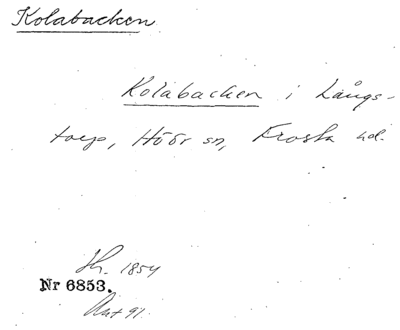 Kolabacken
Kolabacken i Långs-
torp, Höör sn, Frosta hd.
Hr. 1854
Nr 6853.
Ant 91.